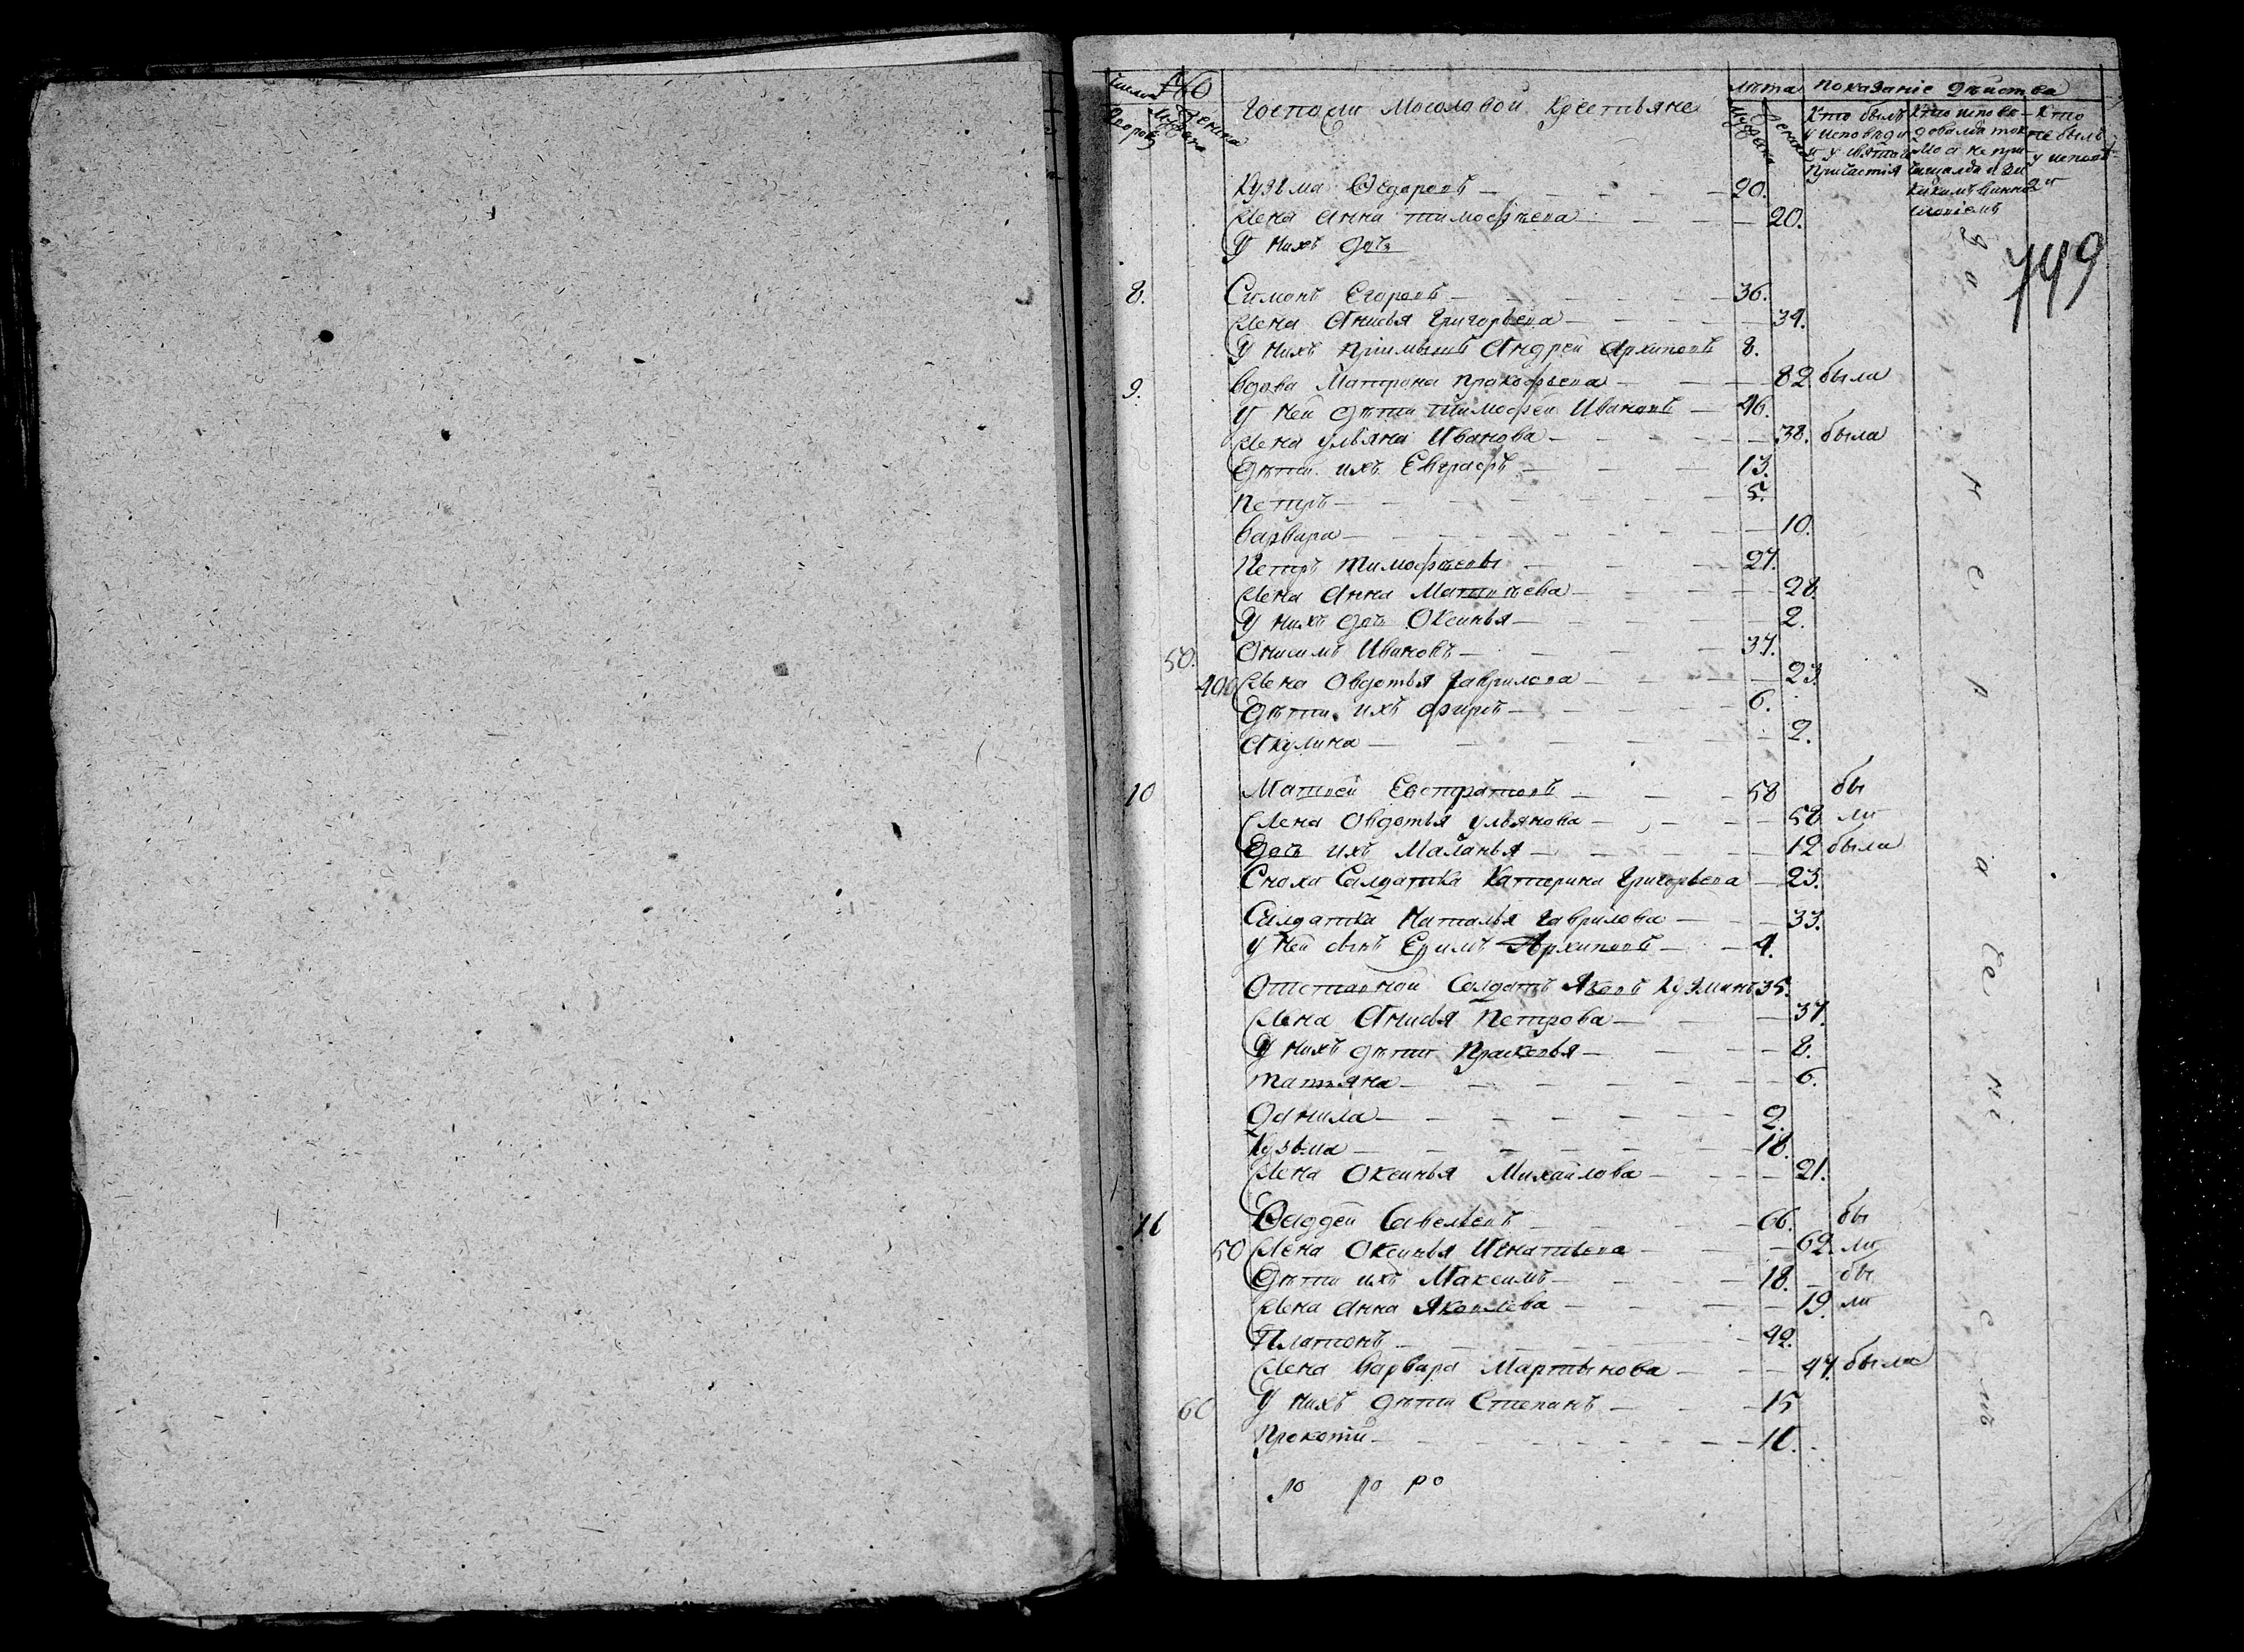 160
Число
Дворовъ
Мужеска
Женска
Госпожи Мосоловой Крестьяне
Лѣта
Мужеска
Женска
Показаніе дѣйства
Кто былъ у исповѣди и у святаго Причастія
Кто исповѣдовался токмо а не причащался и за какимъ винословіемъ
Кто не былъ у исповѣди
749
Кузьма Ѳедоровъ — 20.
Жена Анна Тимоѳѣева — 20.
У нихъ дочь
8. Симонъ Егоровъ — 36.
Жена Анисья Григорьева — 34.
У нихъ пріимышъ Андрей Архиповъ 8.
9. Вдова Матрона Прокофьева — 82 была
У ней дѣти Тимофей Ивановъ — 46.
Жена Ульяна Иванова — 38. была
Дѣти ихъ Евграфъ — 13.
Петръ — 5.
Варвара — 10.
Петръ Тимофѣевъ — 27.
Жена Анна Матвѣева — 28.
У нихъ дочь Оксинья — 2.
50. Онисимъ Ивановъ — 37.
Жена Овдотья Гаврилова — 23.
Дѣти ихъ Фирсъ — 6.
Акулина — 2.
10 Матвей Евстратовъ — 58 бы
Жена Овдотья Ульянова — 58 ли
Дочь ихъ Маланья — 12 была
Сноха Салдатка Катерина Григорьева — 23.
Салдатка Наталья Гаврилова — 33.
У ней сынъ Ефимъ Архиповъ — 4.
Отставной Солдатъ Яковъ Кузминъ 35.
Жена Анисья Петрова — 37.
У нихъ дѣти Прасковья — 8.
Татьяна — 6.
Данила — 2.
Кузьма — 18.
Жена Оксинья Михайлова — 21.
11 Ѳаддей Савельевъ — 66. бы
50 Жена Оксинья Игнатьева — 62. ли
Дѣти ихъ Максимъ — 18. бы
Жена Анна Яковлева — 19. ли
Платонъ — 42.
Жена Варвара Мартынова — 47. была
60 У нихъ дѣти Степанъ — 15
Прокофій — 11.
ро ро ро